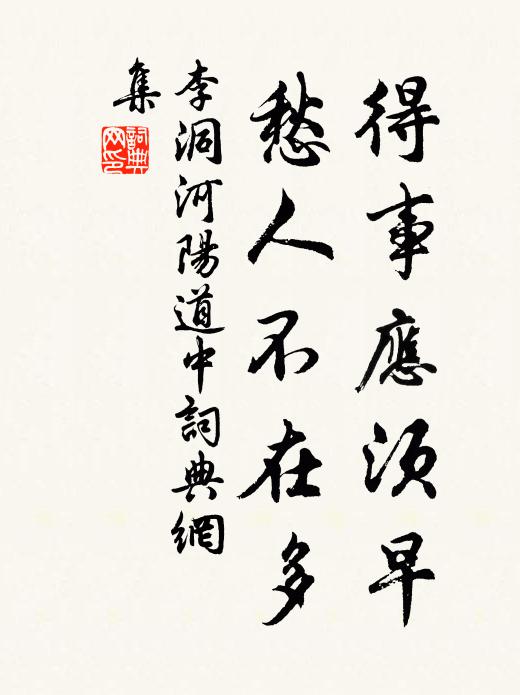 得事應須早
愁人不在多
李洞河陽道中詞典網
集
詞典網印